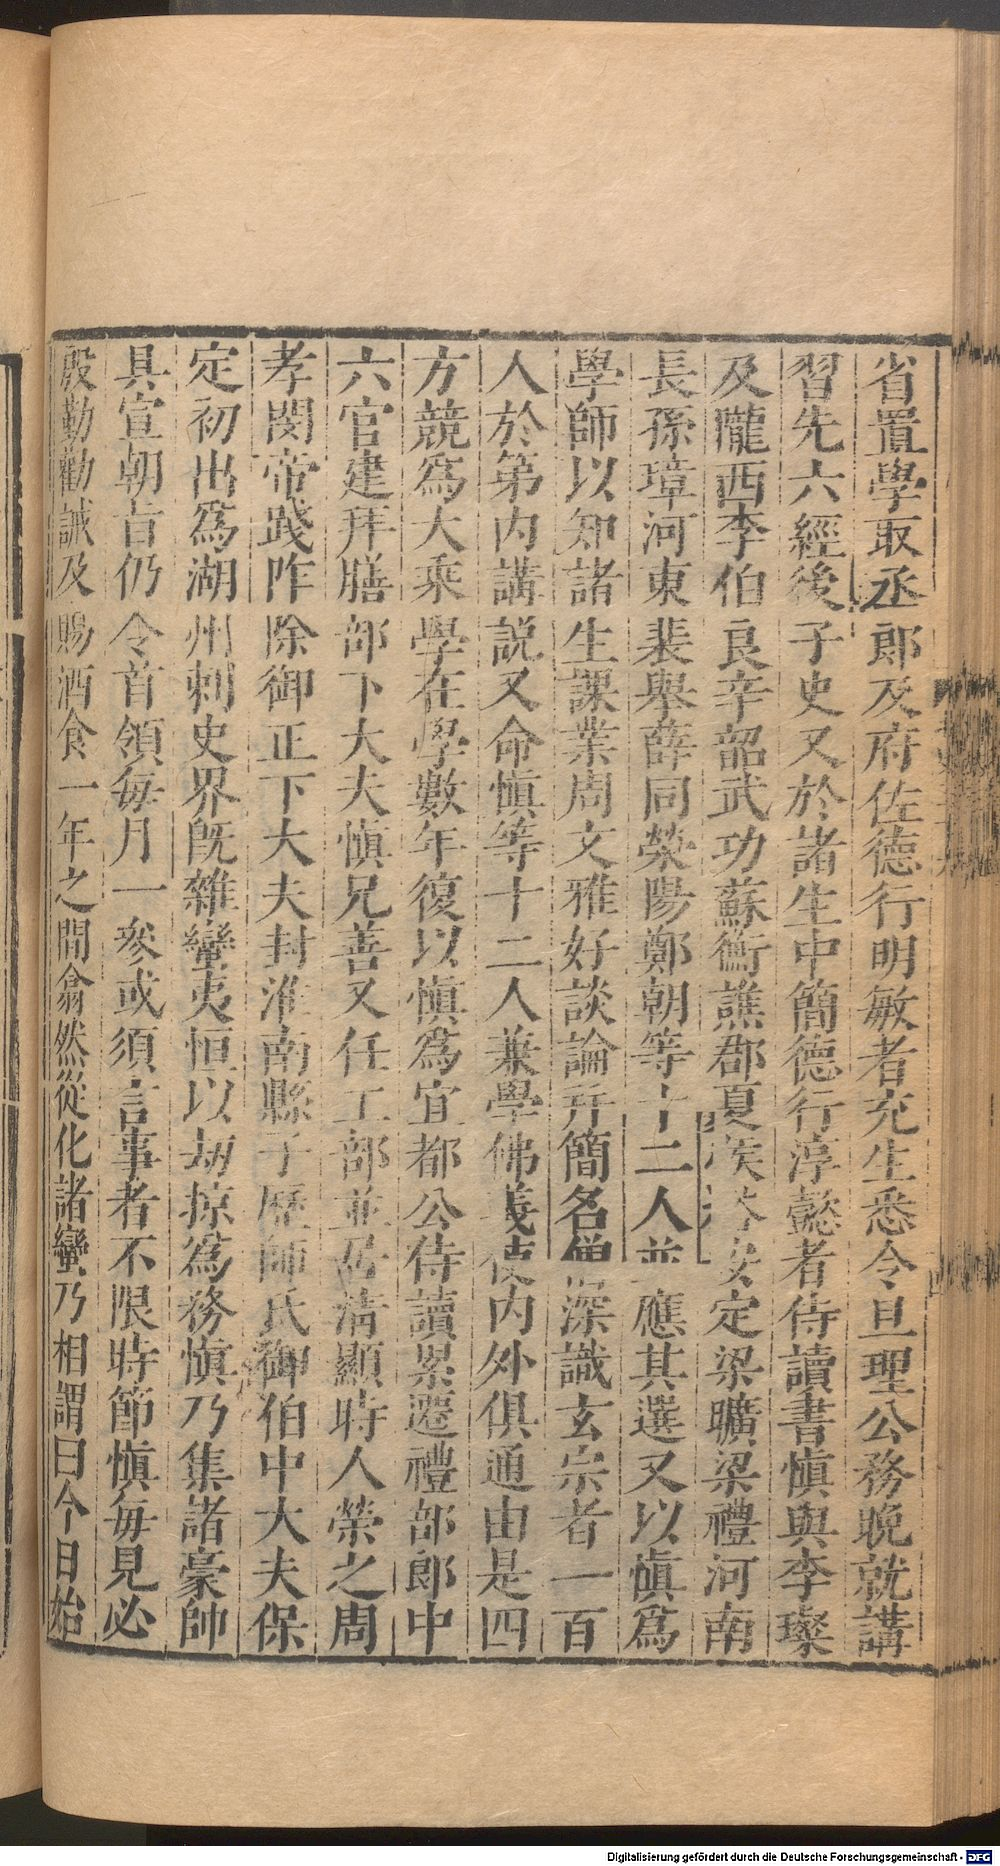 省置學取丞郎及府佐德行明敏者充生悉令旦理公務晚就講
習先六經後子史又於諸生中簡德行淳懿者侍讀書愼與李璨
及隴西李伯良辛韶武功蘇衡譙郡夏侯安定梁曠梁禮河南
長孫璋河東裴舉薛同滎陽鄭朝等十二人並應其選又以愼爲
學師以知諸生課業周文雅好談論并簡名僧深識玄宗者一百
人於第內講説又命愼等十二人兼學佛義使內外俱通由是四
方競爲大乘學在學數年復以愼爲宜都公侍讀累遷禮部郎中
六官建拜膳部下大夫愼兄善又任工部並居淸顯時人榮之周
孝閔帝踐阼除御正下大夫封淮南縣子歷師氏御伯中大夫保
定初出爲湖州刺史界旣雜蠻夷恒以劫掠爲務愼乃集諸豪帥
具宣朝旨仍令首領每月一參或須言事者不限時節愼每見必
殷勤勸誡及賜酒食一年之間翕然從化諸蠻乃相謂曰今日始
Digitalisierung gefördert durch die Deutsche Forschungsgemeinschaft - DFG